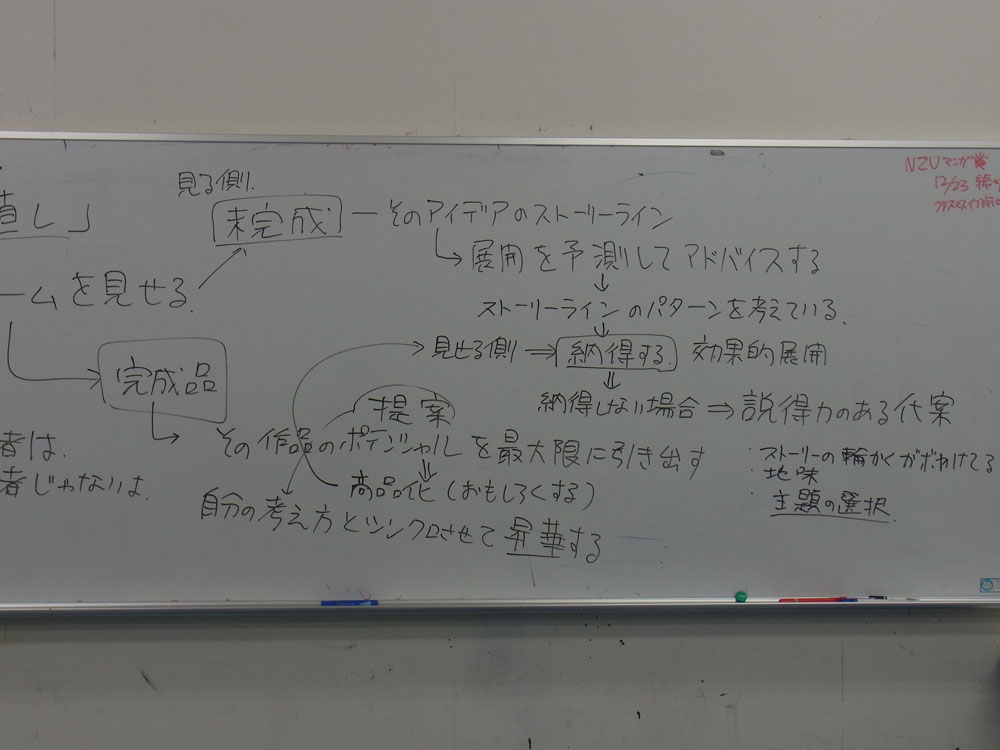 見る側.
直し」
未完成 ― そのアイデアのストーリーライン
→ 展開を予測してアドバイスする
ームを見せる.
↓
ストーリーラインのパターンを考えている.
↓
→ 見せる側 ⇒ 納得する. 効果的展開
→ 完成品
⇓
納得しない場合 ⇒ 説得力のある代案
提案
→ その作品のポテンシャルを最大限に引き出す
⇓
商品化 (おもしろくする)
自分の考え方とシンクロさせて昇華する
者は.
者じゃないは.
・ストーリーの輪かくがボやけてる
・地味
・主題の選択.
NZUマンガ賞
12/23
クリスマスイブ前